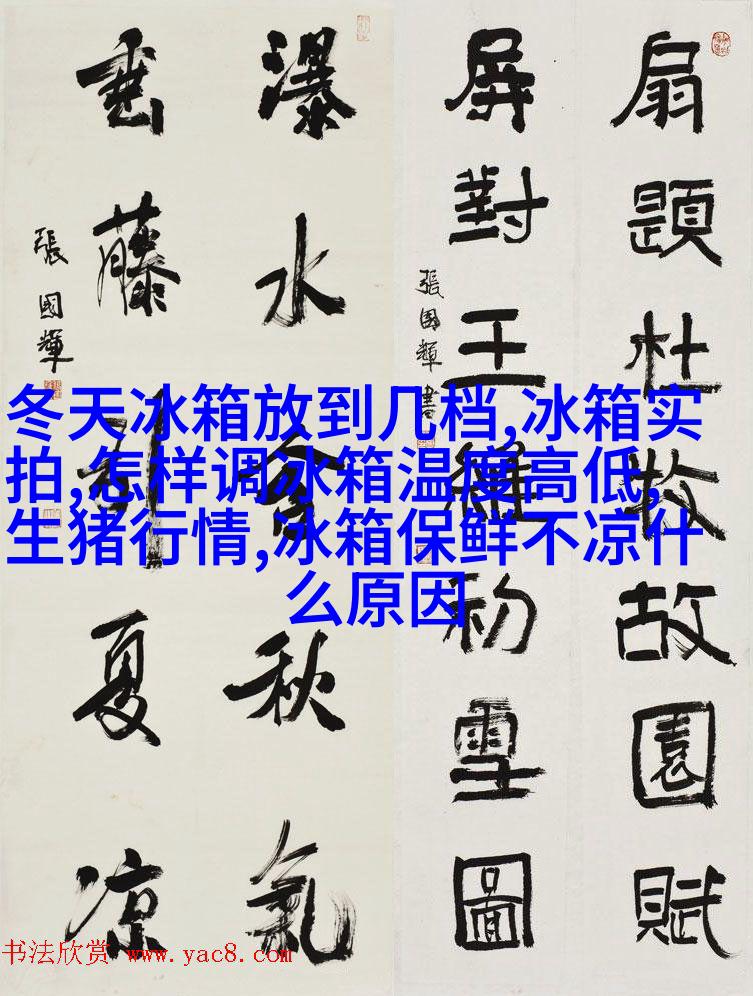 扇題杜牧故園賦
屏對王維初雪圖
張國輝書
瀑水含秋氣
垂藤引夏凉
張國輝
冬天冰箱放到几档,冰箱实
拍,怎样调冰箱温度高低,
生猪行情,冰箱保鲜不凉什
么原因
书法欣赏 www.yac8.com